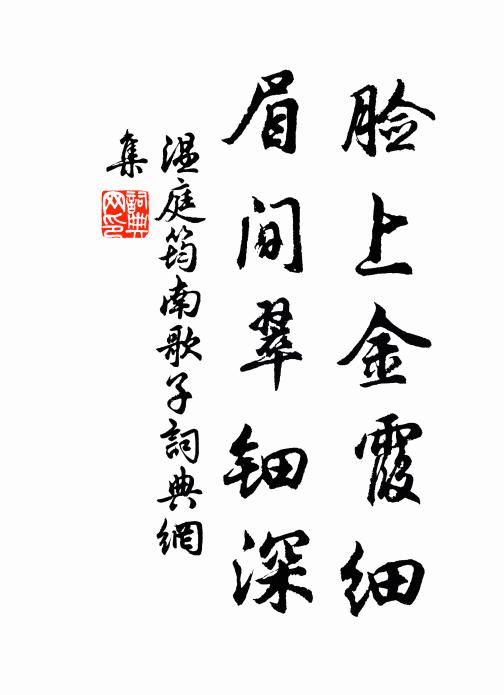 脸上金霞细
眉间翠钿深
温庭筠南歌子詞典網
集
詞典网印